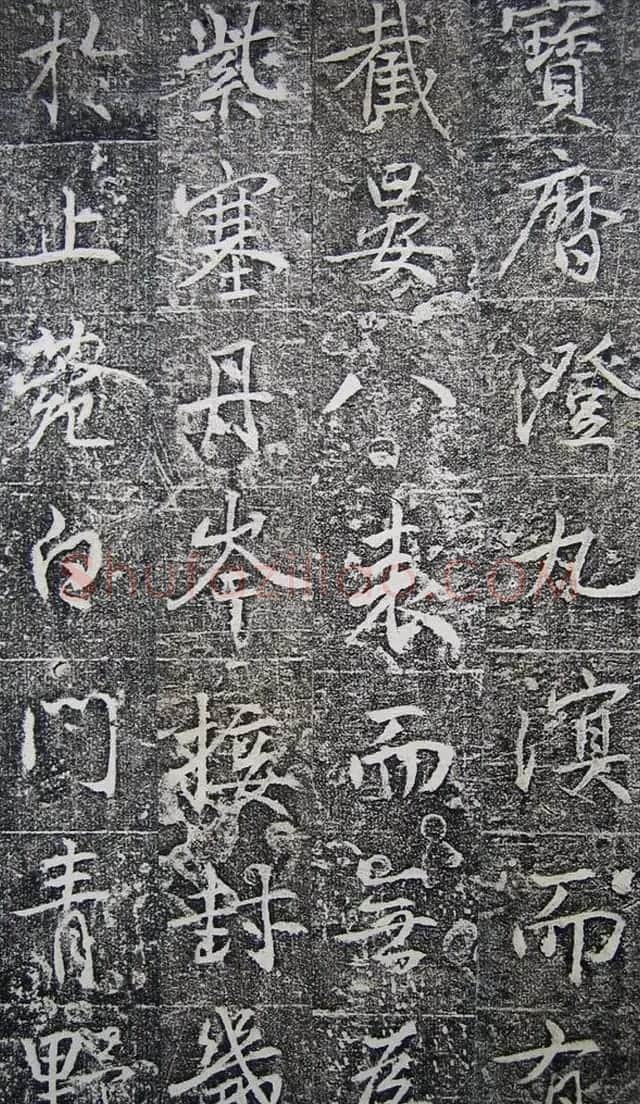 寶曆澄九溟而有
截晏八表而無
紫塞丹岑接封畿
於止白門青野
shufaziliao.com